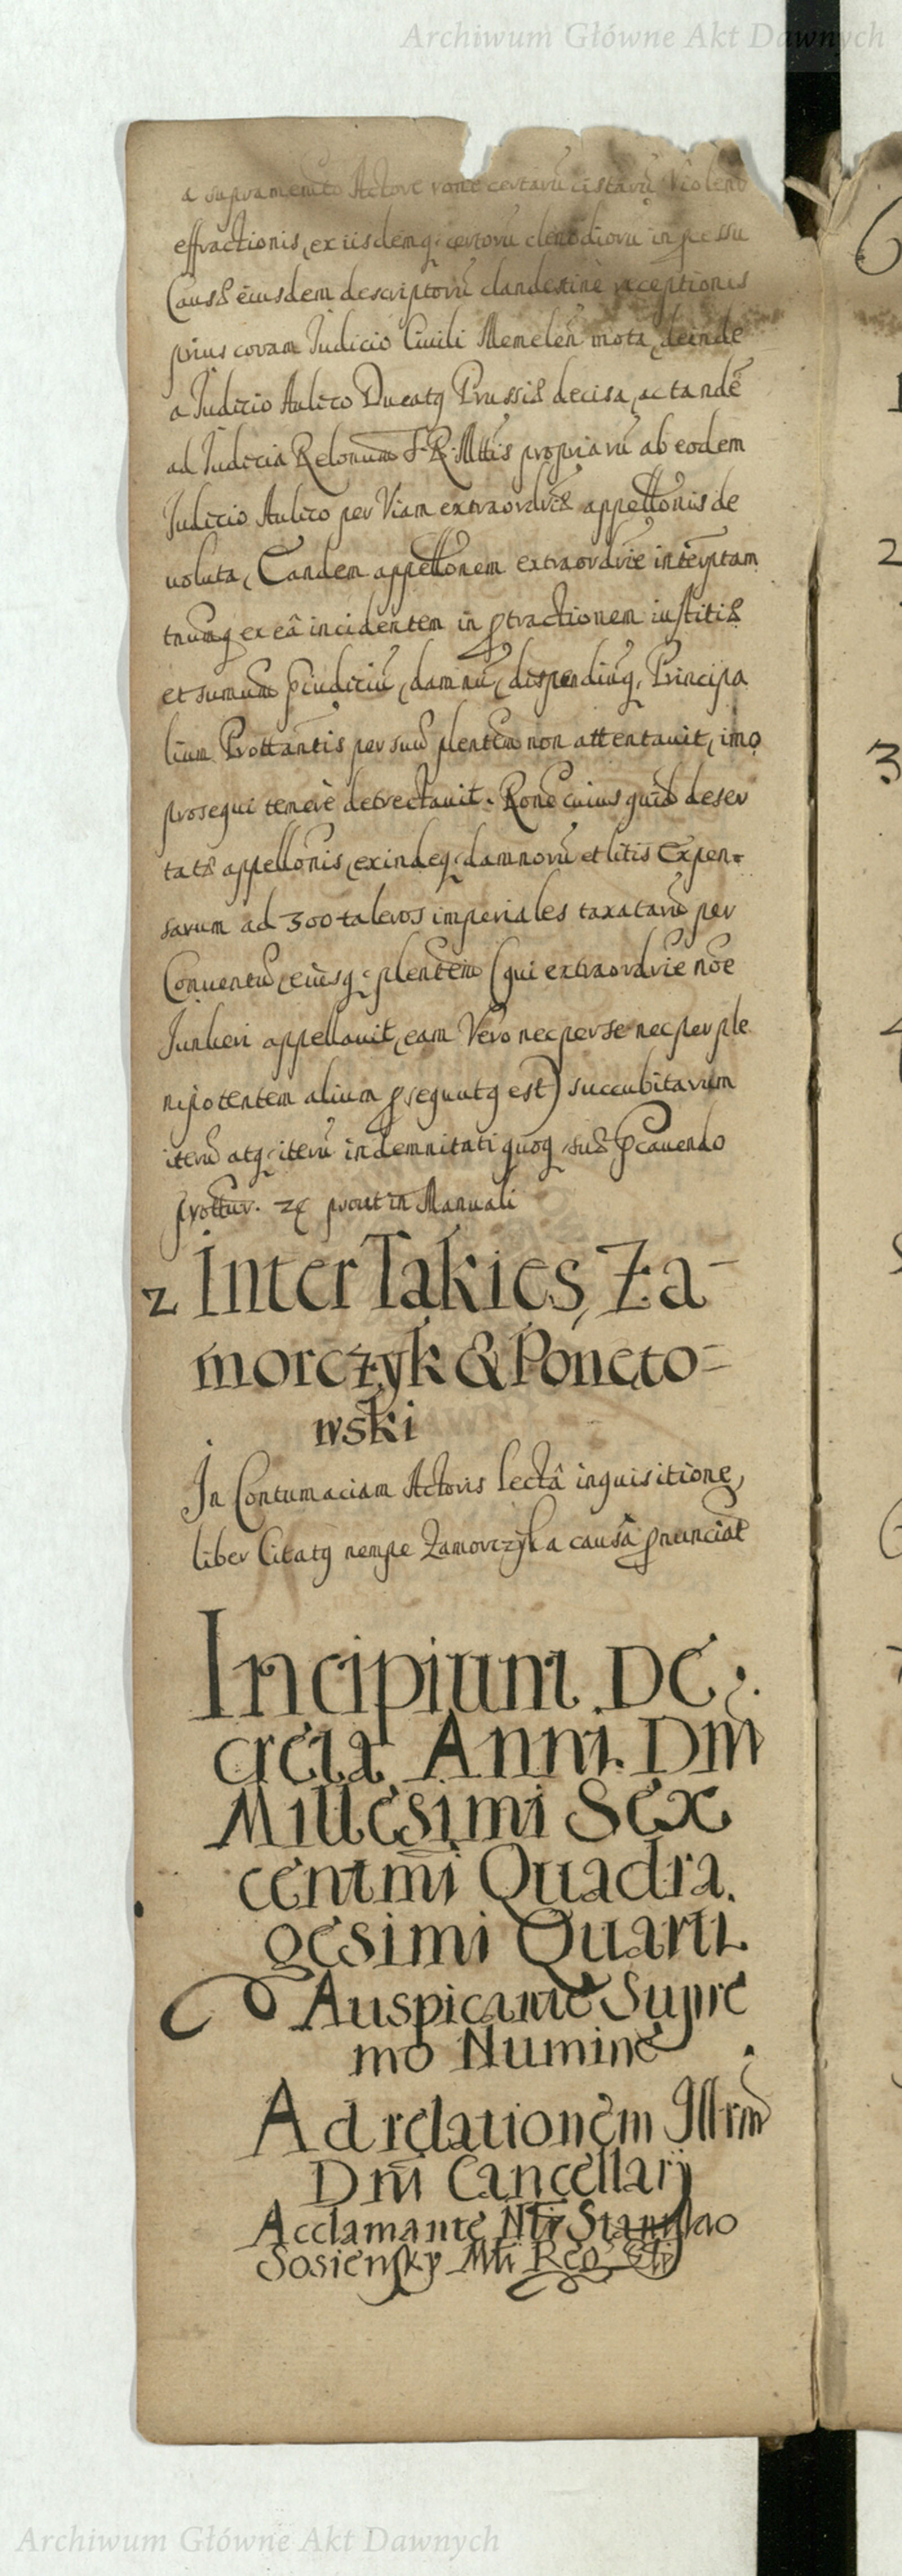 Archiwum Główne Akt Dawnych
a supramemto Actore rone certarũ cistarũ Violent
effractionis, ex iisdemq; certorũ clenodiorũ in
Causæ eiusdem descriptorũ clandestinè receptionis
prius coram Iudicio Ciuili Memeleñ mota, deinde
a Iudicio Aulico Ducatq Prussiæ decisa, ac tandẽ
ad Iudicia Relonum S. R. Mttis propriarũ ab eodem
Iudicio Aulico per Viam extraordriæ appellonis de
uoluta, Tandem appellonem extraordrie interptam
ex eâ incidentem in ptractionem iustitiæ
et sumum piudiciũ, damnũ, dispendiũq, Principa
lium Prottantis per suũ plentem non attentauit, imo
prosequi temerè detrectauit. Rone cuius quid deser
tatæ appellonis, exindeq; damnorũ et litis Expen-
sarum ad 300 taleros imperiales taxatarũ per
Conuentũ, eiusq; plentem (qui extraordrie noe
Iunkeri appellauit, eam Vero nec per se nec per ple
nipotentem alium psequutq est) succubitarum
iterũ atq; iterũ indemnitati quoq suæ pcauendo
prottur. prout in Manuali
2 Inter Takies, Za-
morczyk & Poneto=
wski
In Contumaciam Actoris lectâ inquisitione,
liber Citatq nempe Zamorczyk a causâ pnunciat
Incipium De
creta Anni Dm̃
Millesimi Sex
centmi Quadra.
gesimi Quarti
Auspicante Supre
mo Numine
Ad relationem Illrm̃
Dm̃ Cancellarij
Acclamante Nti Stanislao
Sosiensky Mti Reg
2
3
Archiwum Główne Akt Dawnych